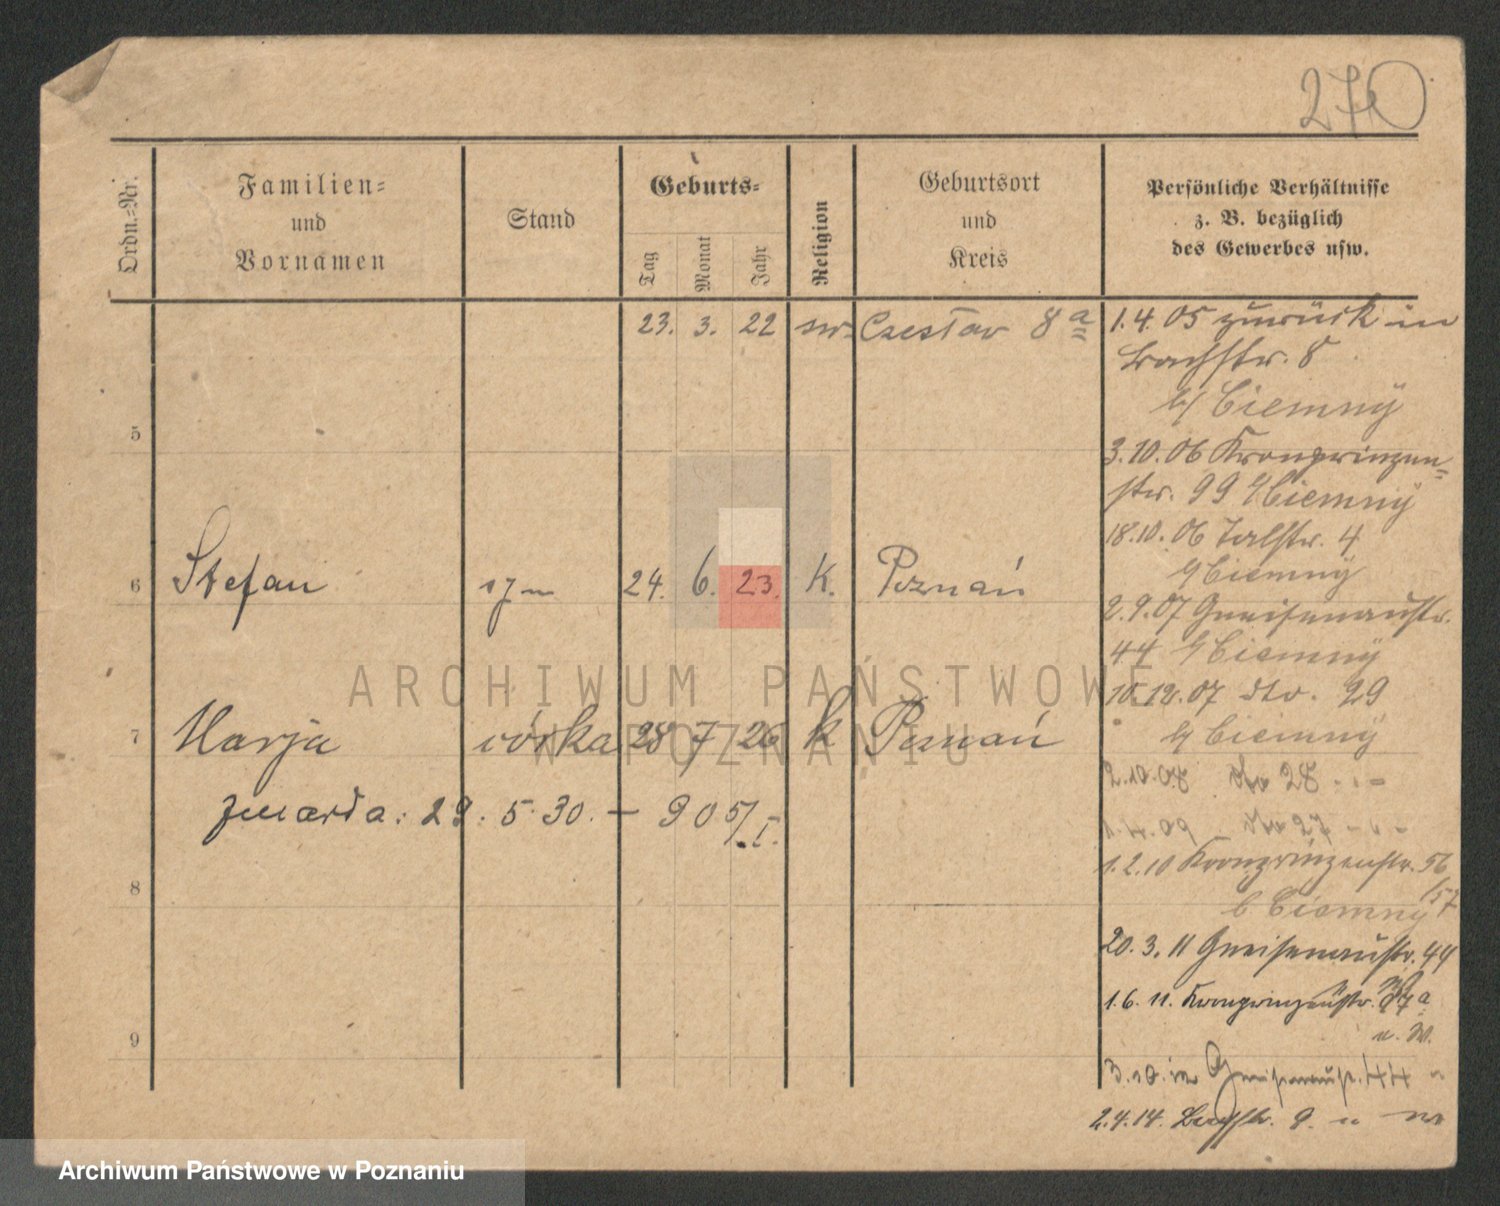 270
Ordn.=Nr.
Familien=
und
Vornamen
Stand
Geburts=
Tag
Monat
Jahr
Religion
Geburtsort
und
Kreis
Persönliche Verhältnisse
z. B. bezüglich
des Gewerbes usw.
23. 3. 22 Czesław 8 a
1.4.05 zurück in
Bachstr. 8
b/ Ciemny
5
3.10.06 Kronprinzen=
str. 99 b/ Ciemny
18.10.06 Talstr. 4
b/ Ciemny
6 Stefan syn 24. 6. 23. K. Poznań
2.9.07 Gneisenaustr.
44 b/ Ciemny
10.12.07 dto. 29
b/ Ciemny
7 Marja córka 28 7 26 k Poznań
zmarła: 29. 5. 30. — 905/I.
2.10.08 dto 28
1.4.09 dto 27
1.2.10 Kronprinzenstr. 56
/57
b Ciemny
8
20.3.11 Gneisenaustr. 44
1.6.11. Kronprinzenstr. a
9
Gneisenaustr. 44
2.4.14. Bachstr. 9.
ARCHIWUM PAŃSTWOWE
W POZNANIU
Archiwum Państwowe w Poznaniu